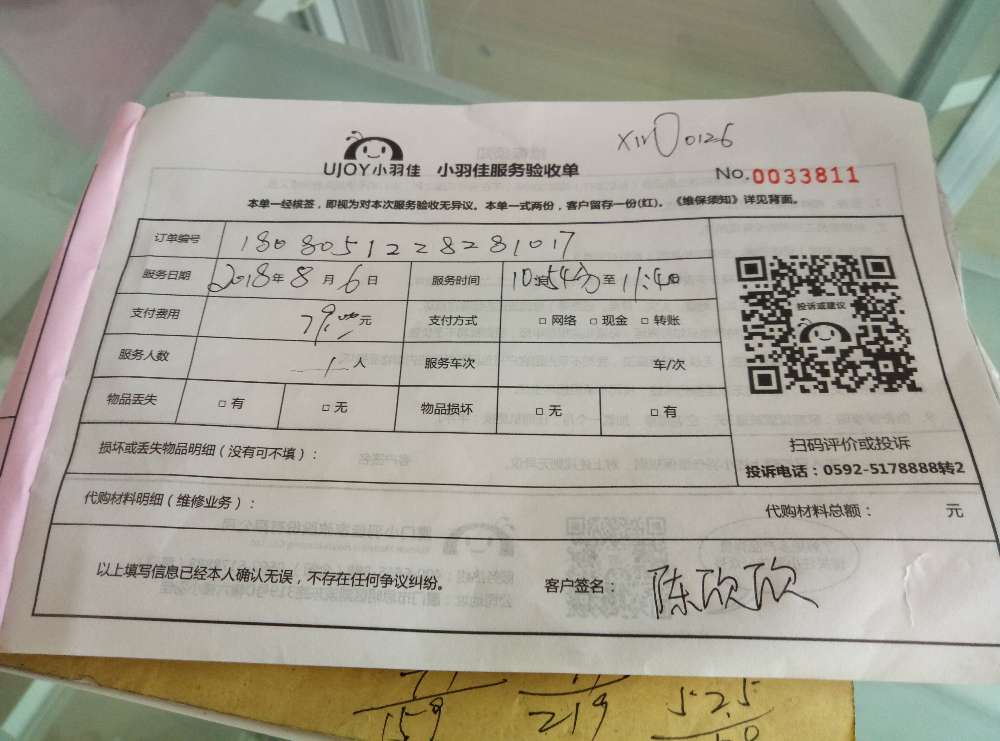 UJOY小羽佳 小羽佳服务验收单
No.0033811
本单一经核签，即视为对本次服务验收无异议。本单一式两份，客户留存一份(红)。《维保须知》详见背面。
订单编号 1808051228281017
服务日期 2018年8月6日 服务时间 10:54分至11:40
支付费用 79.00元 支付方式 □ 网络 □ 现金 □ 转账
服务人数 1人 服务车次 车/次
物品丢失 □ 有 □ 无 物品损坏 □ 无 □ 有
投诉或建议
扫码评价或投诉
投诉电话：0592-5178888转2
损坏或丢失物品明细（没有可不填）：
代购材料明细（维修业务）： 代购材料总额： 元
以上填写信息已经本人确认无误，不存在任何争议纠纷。 客户签名： 陈欣欣
159 219 52.5